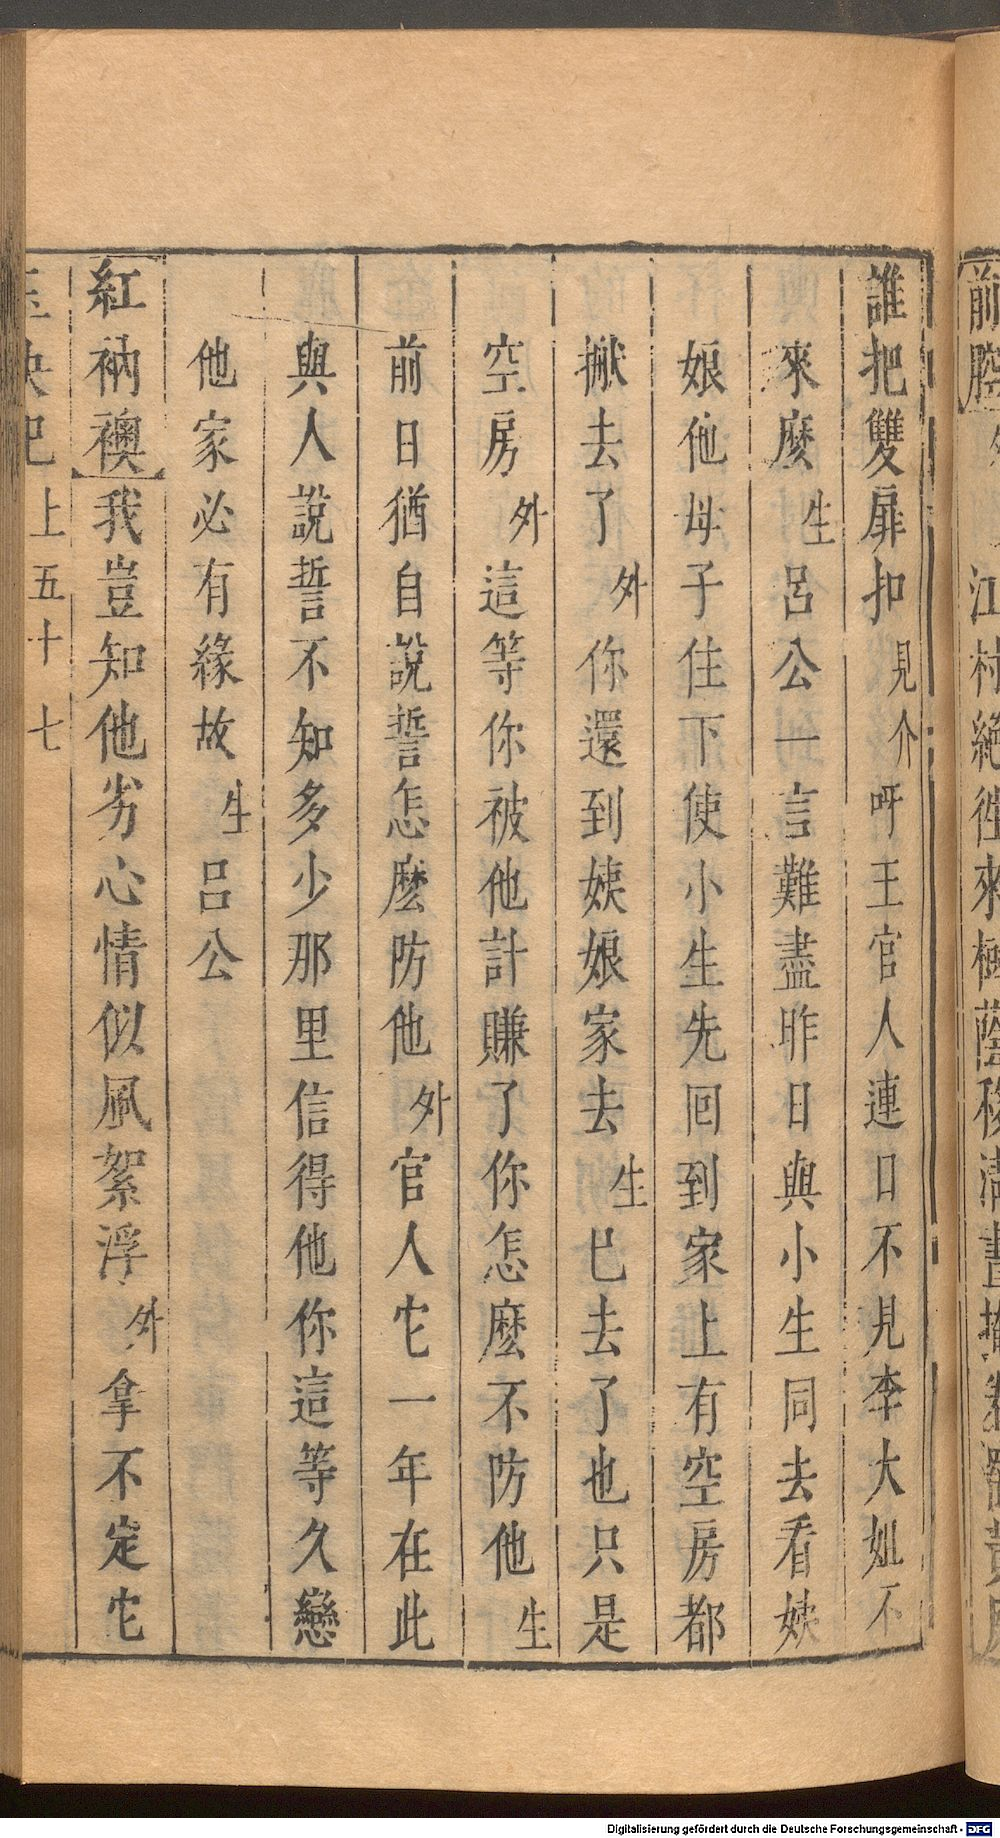 誰把雙扉扣見介呀王官人連日不見李大姐不
來麼生呂公一言難盡昨日與小生同去看姨
娘他母子住下使小生先回到家上有空房都
搬去了外你還到姨娘家去生已去了也只是
空房外這等你被他計賺了你怎麼不防他生
前日猶自說誓怎麼防他外官人它一年在此
與人說誓不知多少那里信得他你這等久戀
他家必有緣故生呂公
紅衲襖我豈知他劣心情似風絮浮外拿不定它
玉玦記上五十七
前腔
江村絕往來樹蔭移清晝
Digitalisierung gefördert durch die Deutsche Forschungsgemeinschaft - DFG